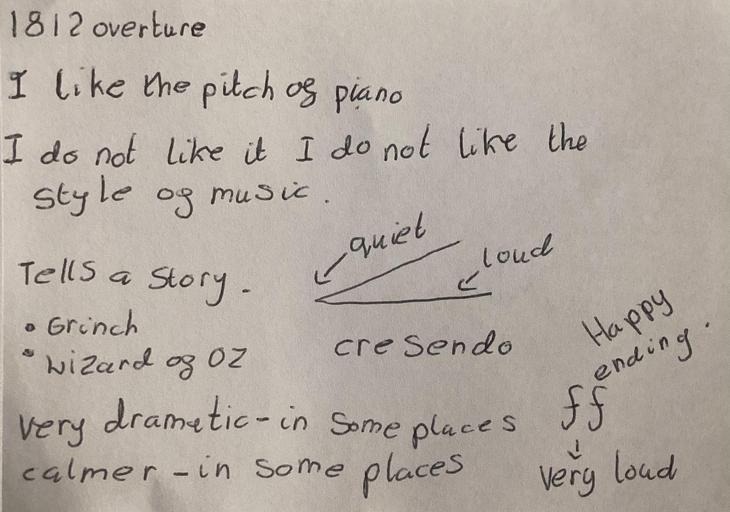 1812 overture
I like the pitch og piano
I do not like it I do not like the
style og music.
Tells a Story.
quiet
loud
• Grinch
• Wizard og OZ
cresendo
Happy
ending.
very dramatic - in some places
ff
calmer - in some places
very loud